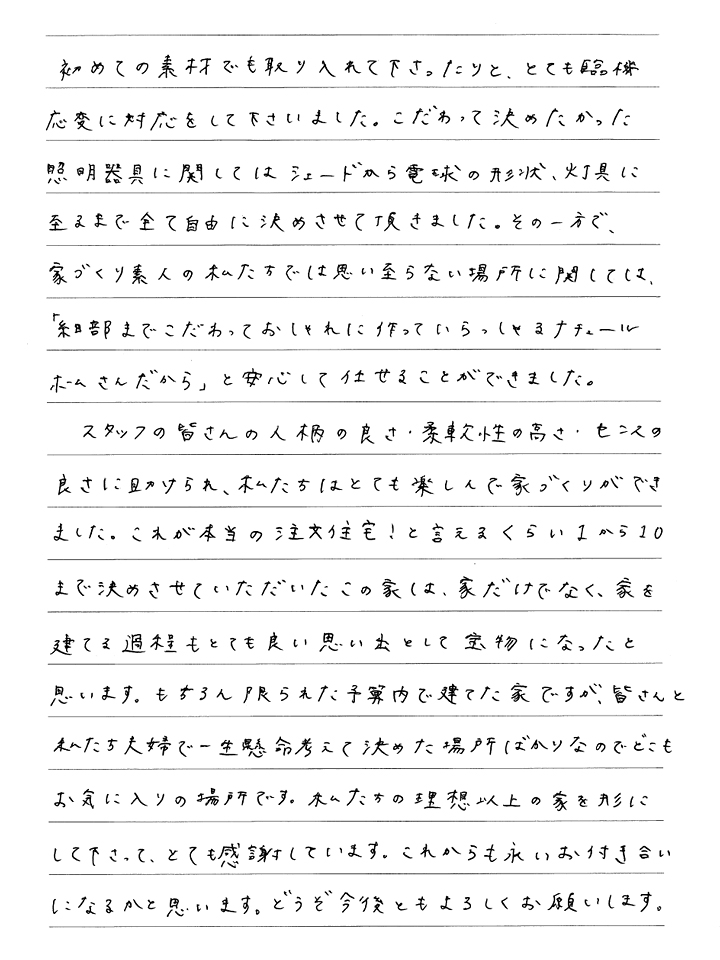 初めての素材でも取り入れて下さったりと、とても臨機
応変に対応をして下さいました。こだわって決めたかった
照明器具に関してはシェードから電球の形状、灯具に
至るまで全て自由に決めさせて頂きました。その一方で、
家づくり素人の私たちでは思い至らない場所に関しては、
「細部までこだわっておしゃれに作っていらっしゃるナチュール
ホームさんだから」と安心して任せることができました。
スタッフの皆さんの人柄の良さ・柔軟性の高さ・センスの
良さに助けられ、私たちはとても楽しんで家づくりができ
ました。これが本当の注文住宅!と言えるくらい1から10
まで決めさせていただいたこの家は、家だけでなく、家を
建てる過程もとても良い思い出として宝物になったと
思います。もちろん限られた予算内で建てた家ですが、皆さんと
私たち夫婦で一生懸命考えて決めた場所ばかりなのでどこも
お気に入りの場所です。私たちの理想以上の家を形に
して下さって、とても感謝しています。これからも永いお付き合い
になるかと思います。どうぞ今後ともよろしくお願いします。